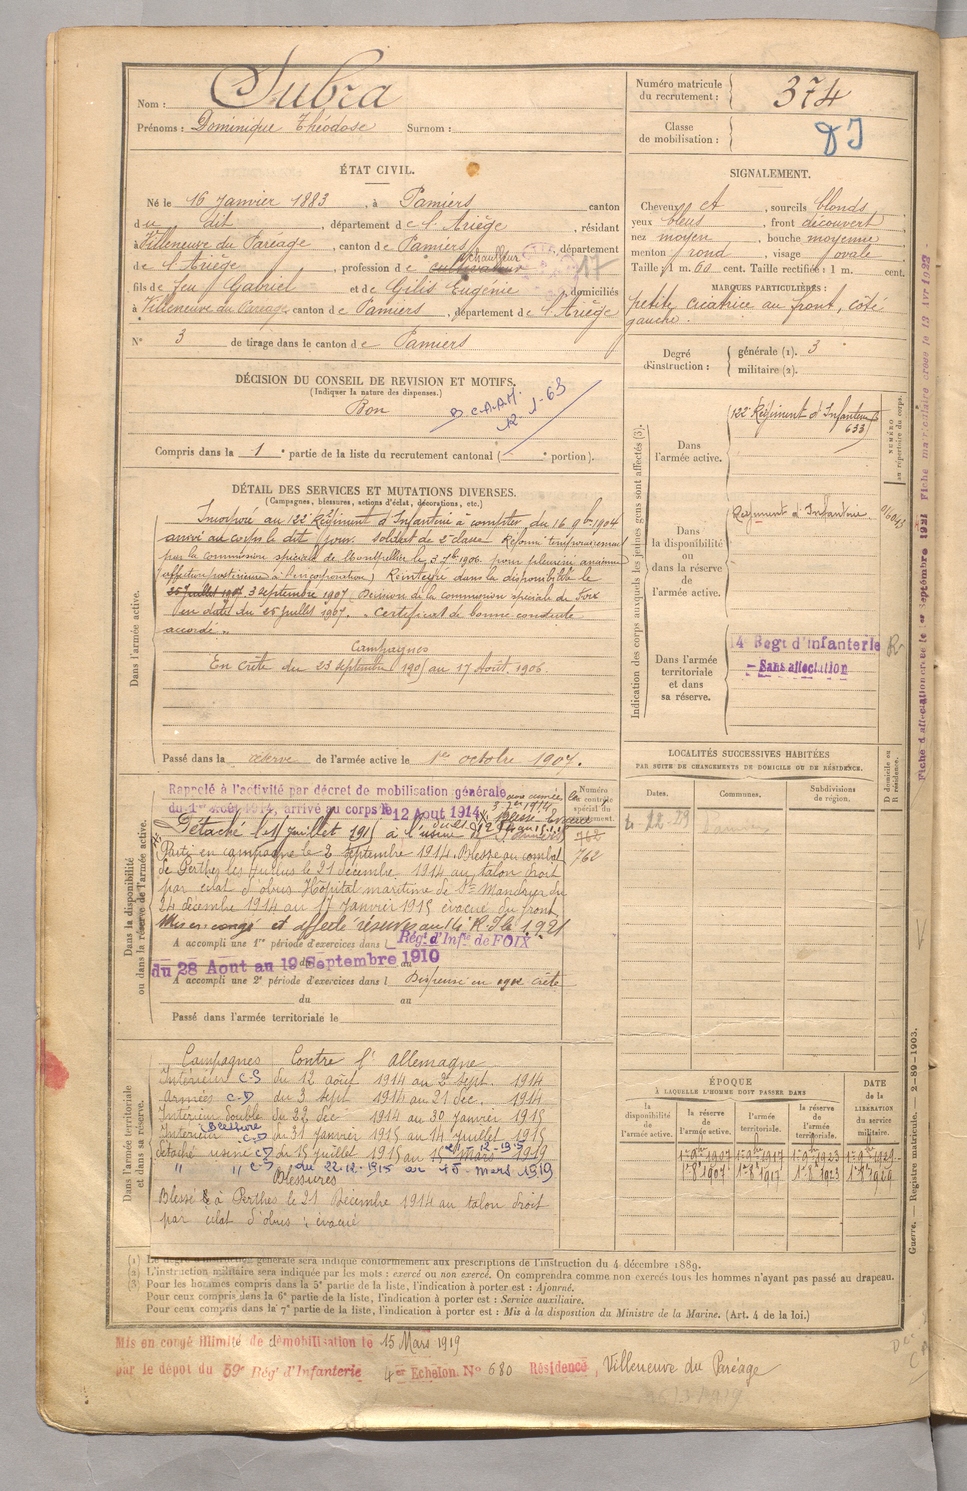 Nom : Subra
Prénoms : Dominique Théodose Surnom :
Numéro matricule du recrutement : 374
Classe de mobilisation :
ÉTAT CIVIL.
Né le 16 Janvier 1883, à Pamiers canton
du dit, département de l'Ariège, résidant
à Villeneuve du Paréage, canton de Pamiers, département
de l'Ariège, profession de cultivateur chauffeur 17
fils de feu Gabriel et de Gilis Eugénie domiciliés
à Villeneuve du Paréage canton de Pamiers, département de l'Ariège
N° 3 de tirage dans le canton de Pamiers
SIGNALEMENT.
Cheveux et, sourcils blonds
yeux bleus, front découvert
nez moyen, bouche moyenne
menton rond, visage ovale
Taille : 1 m. 60 cent. Taille rectifiée : 1 m. cent.
MARQUES PARTICULIÈRES :
petite cicatrice au front, côté
gauche.
Degré d'instruction : générale (1). 3
militaire (2).
DÉCISION DU CONSEIL DE REVISION ET MOTIFS.
(Indiquer la nature des dispenses.)
Bon
Compris dans la 1e partie de la liste du recrutement cantonal ( e portion).
DÉTAIL DES SERVICES ET MUTATIONS DIVERSES.
(Campagnes, blessures, actions d'éclat, décorations, etc.)
Dans l'armée active.
Incorporé au 122e Régiment d'Infanterie à compter du 16 9bre 1904
arrivé au corps le dit jour. soldat de 2e classe. Réformé temporairement
par la commission spéciale de Montpellier le 3 7bre 1906 pour pleurésie ancienne
(affection postérieure à l'incorporation) Réintégré dans la disponibilité le
25 juillet 1907 3 septembre 1907 (Décision de la commission spéciale de Foix
en date du 25 juillet 1907. Certificat de bonne conduite
accordé.
Campagnes
En crête du 23 septembre 1905 au 17 Août 1906.
Passé dans la réserve de l'armée active le 1er octobre 1907.
Indication des corps auxquels les jeunes gens sont affectés (3).
Dans l'armée active. 122e Régiment d'Infanterie
633
NUMÉRO au répertoire du corps.
Dans la disponibilité ou dans la réserve de l'armée active. Régiment d'Infanterie
Dans l'armée territoriale et dans sa réserve. 14e Regt d'infanterie
Sans affectation
Fiche d'affectation créée le 1er Septembre 1921 Fiche matriculaire créée le 13 Avr 1922
Dans la disponibilité ou dans la réserve de l'armée active.
Rappelé à l'activité par décret de mobilisation générale
du 1er août 1914, arrivé au corps le 12 Aout 1914
Détaché le 15 juillet 1915 à l'usine
Parti en campagne le 2 septembre 1914. Blessé au combat
de Perthes les Hurlus le 21 décembre 1914 au talon droit
par éclat d'obus Hôpital maritime de St Mandrier du
24 décembre 1914 au 17 Janvier 1915 évacué du front
Numéro contrôle spécial du
762
A accompli une 1re période d'exercices dans l Rég. d'Infie de FOIX
du 28 Aout au 19 Septembre 1910
A accompli une 2e période d'exercices dans l Dispensé en 1912 crête
du au
Passé dans l'armée territoriale le
LOCALITÉS SUCCESSIVES HABITÉES
PAR SUITE DE CHANGEMENTS DE DOMICILE OU DE RÉSIDENCE.
Dates. Communes. Subdivisions de région. D domicile ou R résidence.
Dans l'armée territoriale et dans sa réserve.
Campagnes Contre l'Allemagne
Intérieur C.S du 12 août 1914 au 2 sept. 1914
Armées C.D du 3 sept 1914 au 21 déc. 1914
Intérieur double du 22 déc 1914 au 30 Janvier 1915
Intérieur blessure C.D du 31 janvier 1915 au 14 juillet 1915
détaché usine C.D du 15 juillet 1915 au 15 mars 1919
" " C-S du 22.12.1915 au 15 mars 1919
Blessures
Blessé à Perthes le 21 Décembre 1914 au talon droit
par éclat d'obus : évacué
ÉPOQUE
À LAQUELLE L'HOMME DOIT PASSER DANS
la disponibilité de l'armée active. la réserve de l'armée active. l'armée territoriale. la réserve de l'armée territoriale. DATE de la LIBÉRATION du service militaire.
1er 8e 1907 1er 8e 1917 1er 8e 1923 1er 8e 1929
(1) Le degré d'instruction générale sera indiqué conformément aux prescriptions de l'instruction du 4 décembre 1889.
(2) L'instruction militaire sera indiquée par les mots : exercé ou non exercé. On comprendra comme non exercés tous les hommes n'ayant pas passé au drapeau.
(3) Pour les hommes compris dans la 5e partie de la liste, l'indication à porter est : Ajourné.
Pour ceux compris dans la 6e partie de la liste, l'indication à porter est : Service auxiliaire.
Pour ceux compris dans la 7e partie de la liste, l'indication à porter est : Mis à la disposition du Ministre de la Marine. (Art. 4 de la loi.)
Guerre. — Registre matricule. — 2-89-1903.
Mis en congé illimité de démobilisation le 15 Mars 1919
par le dépôt du 59e Rég. d'Infanterie 4er Echelon. N° 680 Résidence, Villeneuve du Paréage